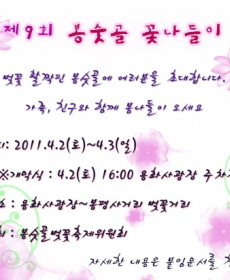 제9회 봉숫골 꽃나들이
벚꽃 활짝핀 봉숫골에 여러분을 초대합니다.
가족, 친구와 함께 봄나들이 오세요
: 2011.4.2(토)~4.3(일)
※개막식 : 4.2(토) 16:00 용화사광장 주차
소 : 용화사광장~봉평사거리 벚꽃거리
최 : 봉숫골벚꽃축제위원회
자세한 내용은 붙임문서를